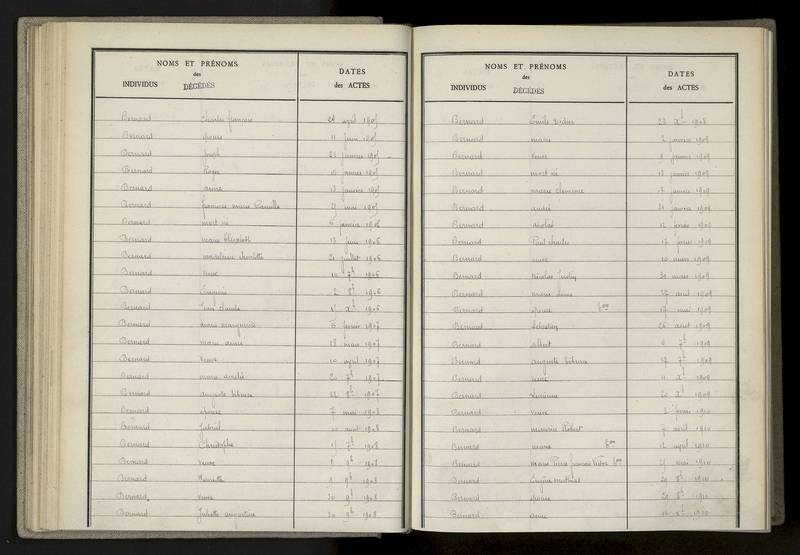 NOMS ET PRÉNOMS
des
INDIVIDUS DÉCÉDÉS
DATES
des ACTES
Bernard Charles françois avril 1905
Bernard épouse 11 juin 1905
Bernard Joseph 23 janvier 1905
Bernard Roger janvier 1905
Bernard anna 13 janvier 1905
Bernard françoise marie Camille 21 mai 1905
Bernard mort né 6 janvier 1906
Bernard marie Elisabeth 13 juin 1906
Bernard madeleine charlotte 21 juillet 1906
Bernard veuve 10 7b 1906
Bernard 2 8b 1906
Bernard Jean claude 1 Xb 1906
Bernard anne marguerite 6 février 1907
Bernard marie anne 18 mars 1907
Bernard veuve 10 april 1907
Bernard marie amélie 20 7b 1907
Bernard auguste 22 8b 1907
Bernard épouse 7 mai 1908
Bernard Gabriel 10 aout 1908
Bernard Christophe 7b 1908
Bernard veuve 8 9b 1908
Bernard 9 9b 1908
Bernard veuve 20 9b 1908
Bernard Juliette augustine 20 9b 1908
NOMS ET PRÉNOMS
des
INDIVIDUS DÉCÉDÉS
DATES
des ACTES
Bernard Emile Didier 23 Xb 1908
Bernard marie 2 janvier 1909
Bernard veuve 9 janvier 1909
Bernard mort né 13 janvier 1909
Bernard marie clemence 17 janvier 1909
Bernard andré 21 janvier 1909
Bernard nicolas 12 février 1909
Bernard Paul charles 17 février 1909
Bernard veuve 10 mars 1909
Bernard Nicolas Justin 31 mars 1909
Bernard marie 27 avril 1909
Bernard épouse 17 mai 1909
Bernard Sébastien 26 aout 1909
Bernard albert 6 7b 1909
Bernard auguste 27 7b 1909
Bernard veuve 11 Xb 1909
Bernard Lucienne 20 Xb 1909
Bernard veuve 2 février 1910
Bernard maurice Robert 7 avril 1910
Bernard avril 1910
Bernard marie Pierre françois Victor mai 1910
Bernard Eugène 29 8b 1910
Bernard épouse 29 8b 1910
Bernard anne 16 Xb 1910